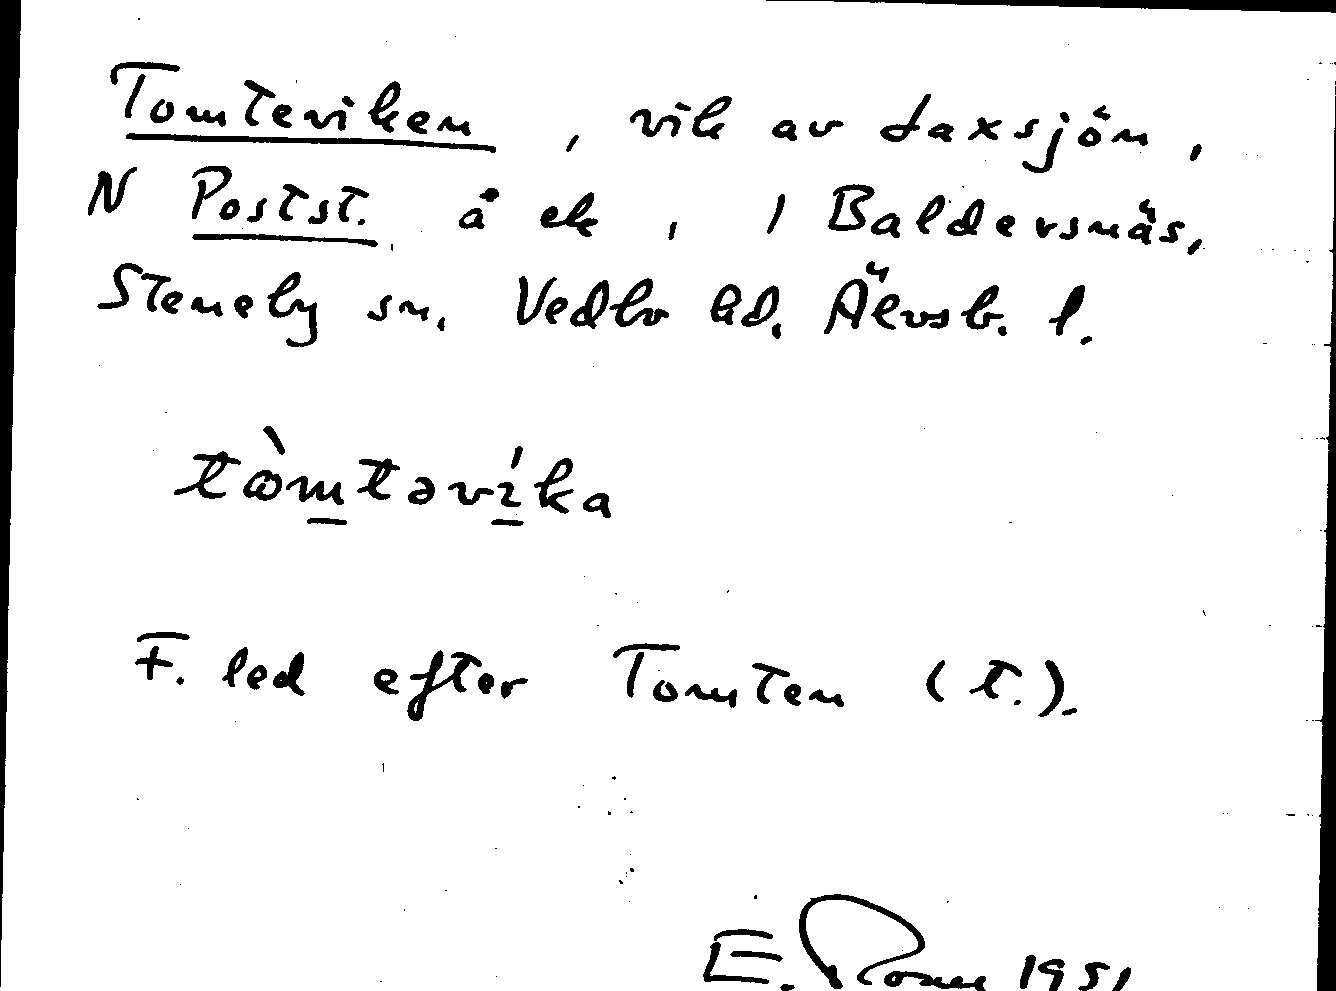 Tomteviken, vik av Laxsjön,
N Postst. å ek, i Baldersnäs,
Steneby sn. Vedbo hd. Älvsb. l.
tòmtəvíka
F. led efter Tomten (t.).
E. 1951